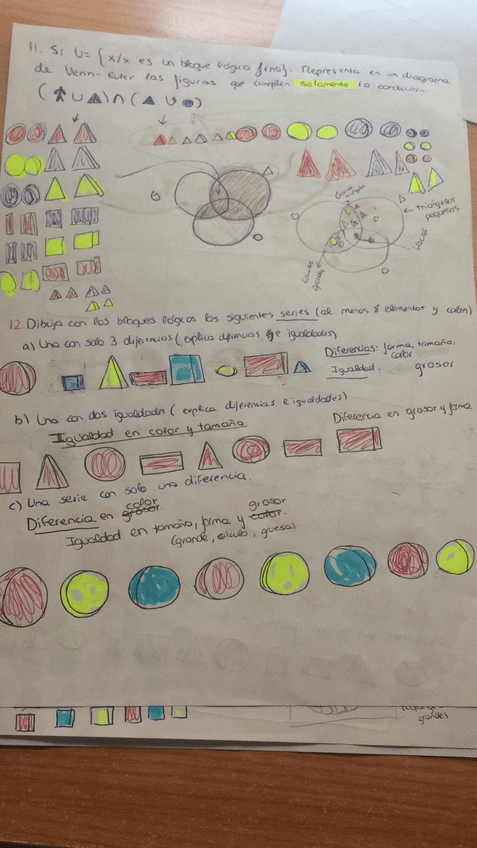 11. Si U= { x/x es un bloque lógico fino}. Representa en un diagrama
de Venn-Euler las figuras que cumplen solamente la condición.
( ∪ ▲) ∩ ( ▲ ∪ ●)
triángulos
pequeños
Vacío
12. Dibuja con los bloques lógicos las siguientes series (al menos 8 elementos y color)
a) Una con solo 3 diferencias (explica diferencias e igualdades)
Diferencias: forma, tamaño,
color
Igualdad. grosor
b) Una con dos igualdades (explica diferencias e igualdades)
Igualdad en color y tamaño
Diferencia en grosor y forma
c) Una serie con solo una diferencia.
color
Diferencia en grosor.
grosor
Igualdad en tamaño, forma y color.
(grande, círculo, guesa)
grandes